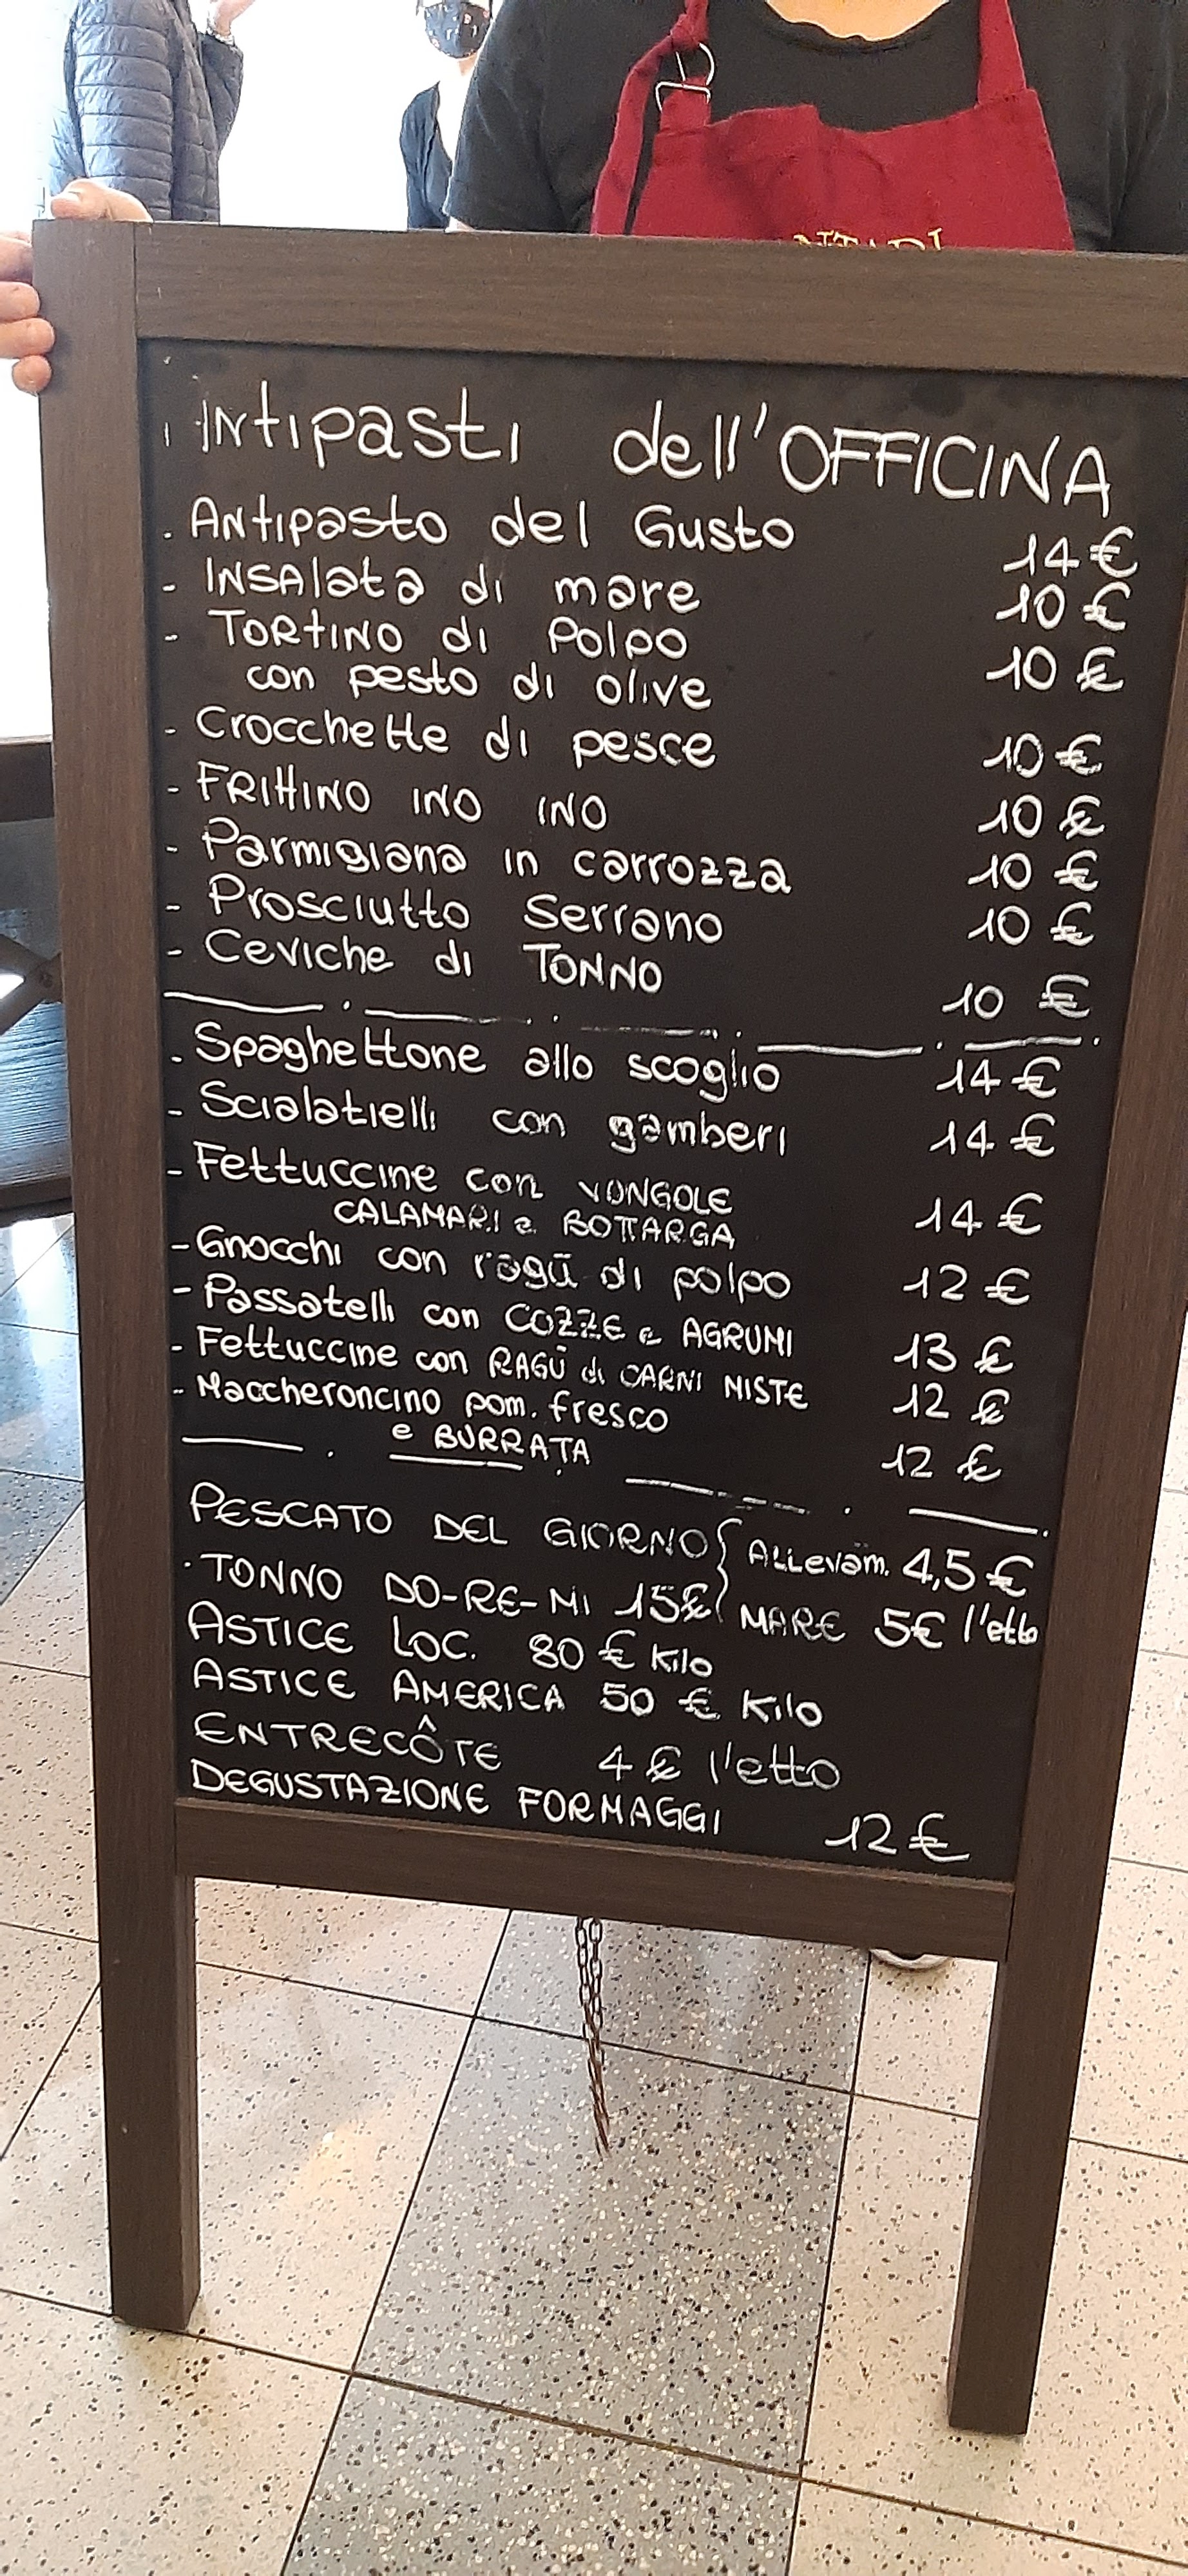 NTARI
Antipasti dell'OFFICINA
. Antipasto del Gusto 14 €
- INSAlata di mare 10 €
- TORtINO di Polpo 10 €
con pesto di olive
- Crocchette di pesce 10 €
- FRIttINO INO INO 10 €
- Parmigiana in carrozza 10 €
- Prosciutto Serrano 10 €
- Ceviche di TONNO 10 €
. Spaghettone allo scoglio 14 €
- Scialatielli con gamberi 14 €
- Fettuccine con VONGOLE 14 €
CALAMARI e BOTTARGA
- Gnocchi con ragū di polpo 12 €
- Passatelli con COZZE e AGRUMI 13 €
- Fettuccine con RAGŪ di CARNI MISTE 12 €
- Maccheroncino pom. fresco 12 €
e BURRATA
PESCATO DEL GIORNO { ALLEVAM. 4,5 €
· TONNO DO-RE-MI 15€ MARE 5€ l'etto
ASTICE LOC. 80 € Kilo
ASTICE AMERICA 50 € Kilo
ENTRECÔTE 4 € l'etto
DEGUSTAZIONE FORMAGGI 12 €